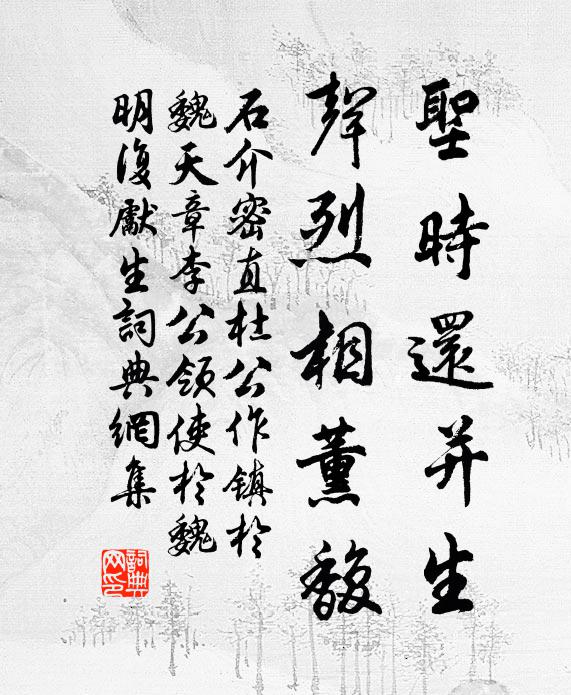 聖時還并生
聲烈相薰馥
石介密直杜公作鎮於
魏天章李公領使於魏
明復獻生詞典網集
詞典
网印